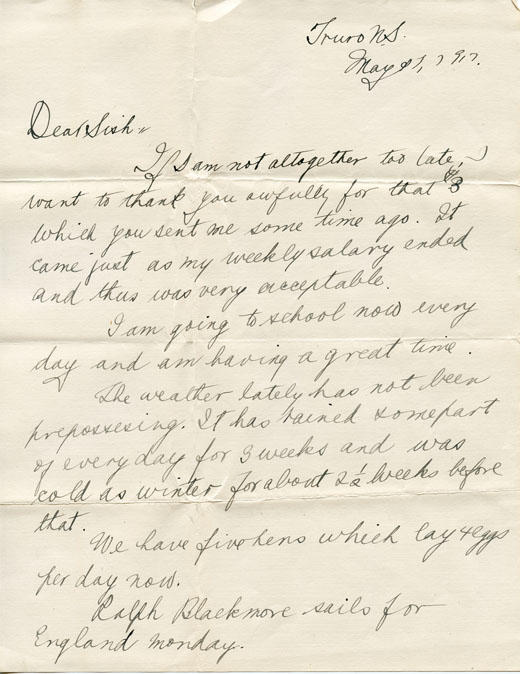 Truro N.S.
May 21, 1917.
Dear Sish =
If I am not altogether too late, I
want to thank you awfully for that $3
which you sent me some time ago. It
came just as my weekly salary ended
and thus was very acceptable.
I am going to school now every
day and am having a great time.
The weather lately has not been
prepossesing. It has rained some part
of every day for 3 weeks and was
cold as winter for about 2½ weeks before
that.
We have five hens which lay 4 eggs
per day now.
Ralph Blackmore sails for
England monday.